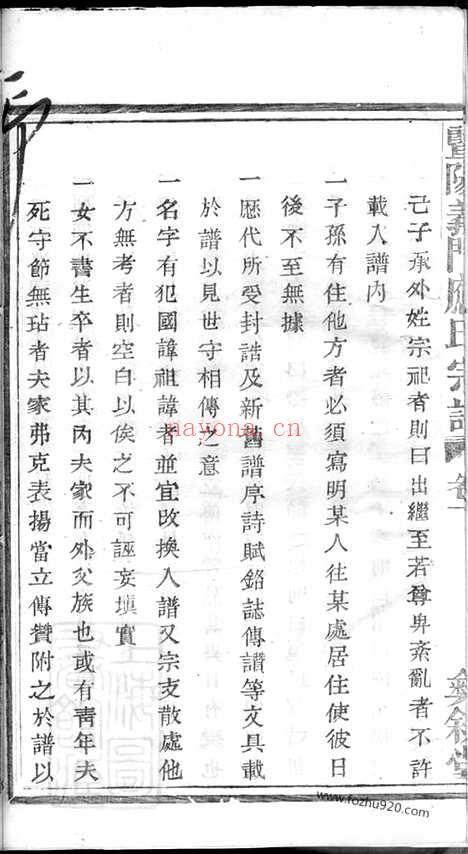 暨陽義門應氏宗譜 卷一
己子承外姓宗祀者則曰出繼至若尊卑紊亂者不許
載入譜內
一子孫有住他方者必須寫明某人往某處居住使彼日
後不至無據
一歷代所受封誥及新舊譜序詩賦銘誌傳讚等文具載
於譜以見世守相傳之意
一名字有犯國諱祖諱者並宜改換入譜又宗支散處他
方無考者則空白以俟之不可誣妄填實
一女不書生卒者以其內夫家而外父族也或有靑年夫
死守節無玷者夫家弗克表揚當立傳贊附之於譜以
nayona.cn
www.fozhu920.com